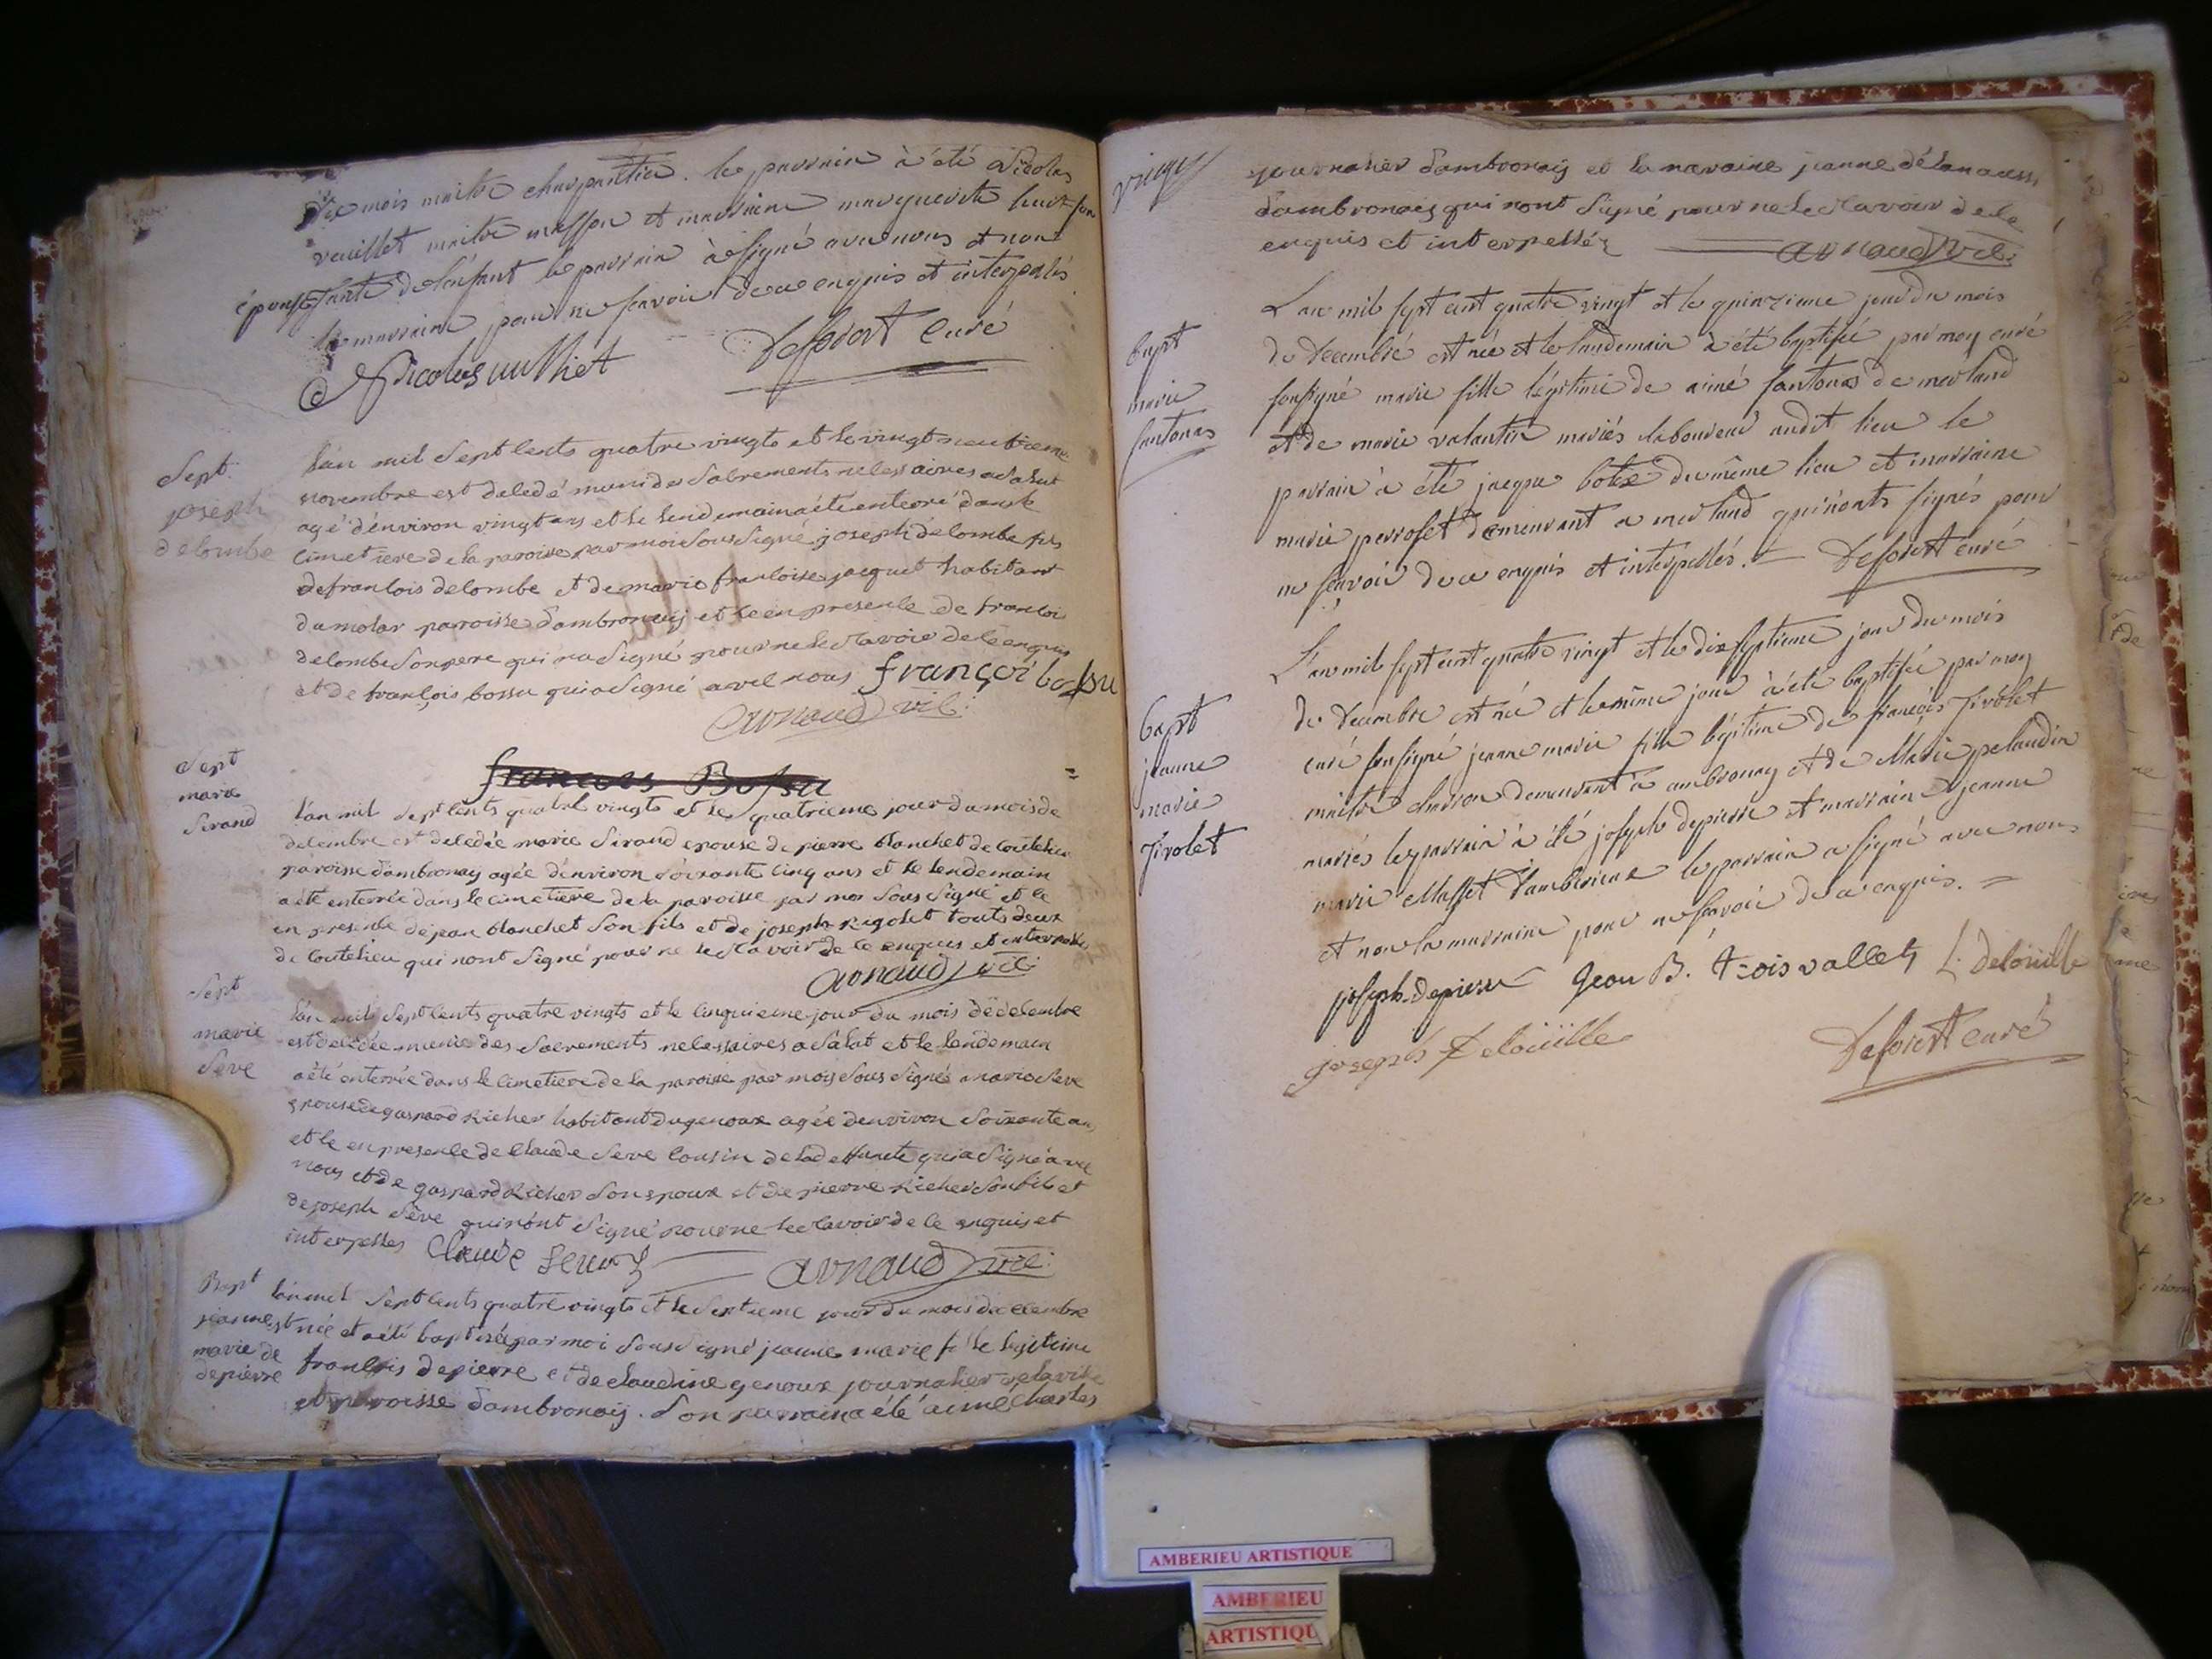 mois maitre charpantié. le parrain à été Nicolas
vuillet maitre masson et marraine marguerite
épouse tante de lenfant le parrain à signé avec nous et non
la marraine pour ne scavoir de ce enquis et interpelés
Nicolas vulliet Desfort curé
Sept.
joseph
delombe
L'an mil sept cents quatre vingts et le vingt neuvieme
novembre est decedé muni des sacrements necessaires a salut
agé d'environ vingt ans et le lendemain a été enterré dans le
cimetiere de la paroisse par moi soussigné joseph delombe fils
de francois delombe et de marie francoise jacquet habitant
du molar parroisse d'ambronay et ce en presence de francois
delombe son pere qui na signé pour ne le scavoir de ce enquis
et de francois bossu qui a signé avec nous françoi bossu
arnaud vic:
francois Bossu
Sept
marie
Sirand
L'an mil sept cents quatre vingts et le quatrieme jour du mois de
decembre est decedée marie Sirand epouse de pierre blanchet de coutelieu
paroisse d'ambronay agée d'environ soixante cinq ans et le lendemain
a été enterrée dans le cimetiere de la paroisse par moi sous signé et ce
en presence de jean blanchet son fils et de joseph rigolet touts deux
de coutelieu qui n'ont signé pour ne le scavoir de ce enquis et interpellés
arnaud vic:
Sept
marie
Seve
L'an mil sept cents quatre vingts et le cinquieme jour du mois de decembre
est decedée munie des sacrements necessaires a salut et le lendemain
a été enterrée dans le cimetiere de la paroisse par moi sous signé marie Seve
epouse de gaspard Richer habitant du genoux agée d'environ soixante ans
et ce en presence de claude Seve cousin de la deffuncte qui a signé avec
nous et de gaspard Richer son epoux et de pierre Richer son fils et
de joseph Sève qui n'ont signé pour ne le scavoir de ce enquis et
interpellés Claude arnaud vic:
Bapt
jeanne
marie de
depierre
L'an mil sept cents quatre vingts et le septieme jour du mois decembre
est née et a été baptisée par moi sous signé jeanne marie fille legitime
francois depierre et de claudine genoux journalier de la ville
et paroisse d'ambronay. Son parrain a été aimé charles
journalier d'ambronay et la maraine jeanne
d'ambronay qui n'ont signé pour ne le scavoir de ce
enquis et interpellés arnaud vic:
bapt
marie
fantonas
L'an mil sept cent quatre vingt et le quinzieme jour du mois
de decembre est née et le landemain à été baptisée par moy curé
sousigné marie fille légitime de aimé fantonas de merland
et de marie valantin mariés laboureur audit lieu le
parrain à été jacque botex du même lieu et marraine
marie perroset demeurant a merland qui n'onts signés pour
ne scavoir de ce enquis et interpellés. Desfort curé
bapt
jeanne
marie
Tivolet
L'an mil sept cent quatre vingt et le dix septieme jour du mois
de decembre est née et le même jour à été baptisée par moy
curé sousigné jeanne marie fille légitime de françois Tivolet
maitre demeurant à ambronay et de Marie pelaudin
mariés le parrain à été joseph depierre et marraine jeanne
marie Masset d'amberieux le parrain a signé avec nous
et non la marraine pour ne scavoir de ce enquis.
joseph depierre jean B. vallet L: deloüille
joseph Deloüille Desfort curé
AMBERIEU ARTISTIQUE
AMBERIEU
ARTISTIQU